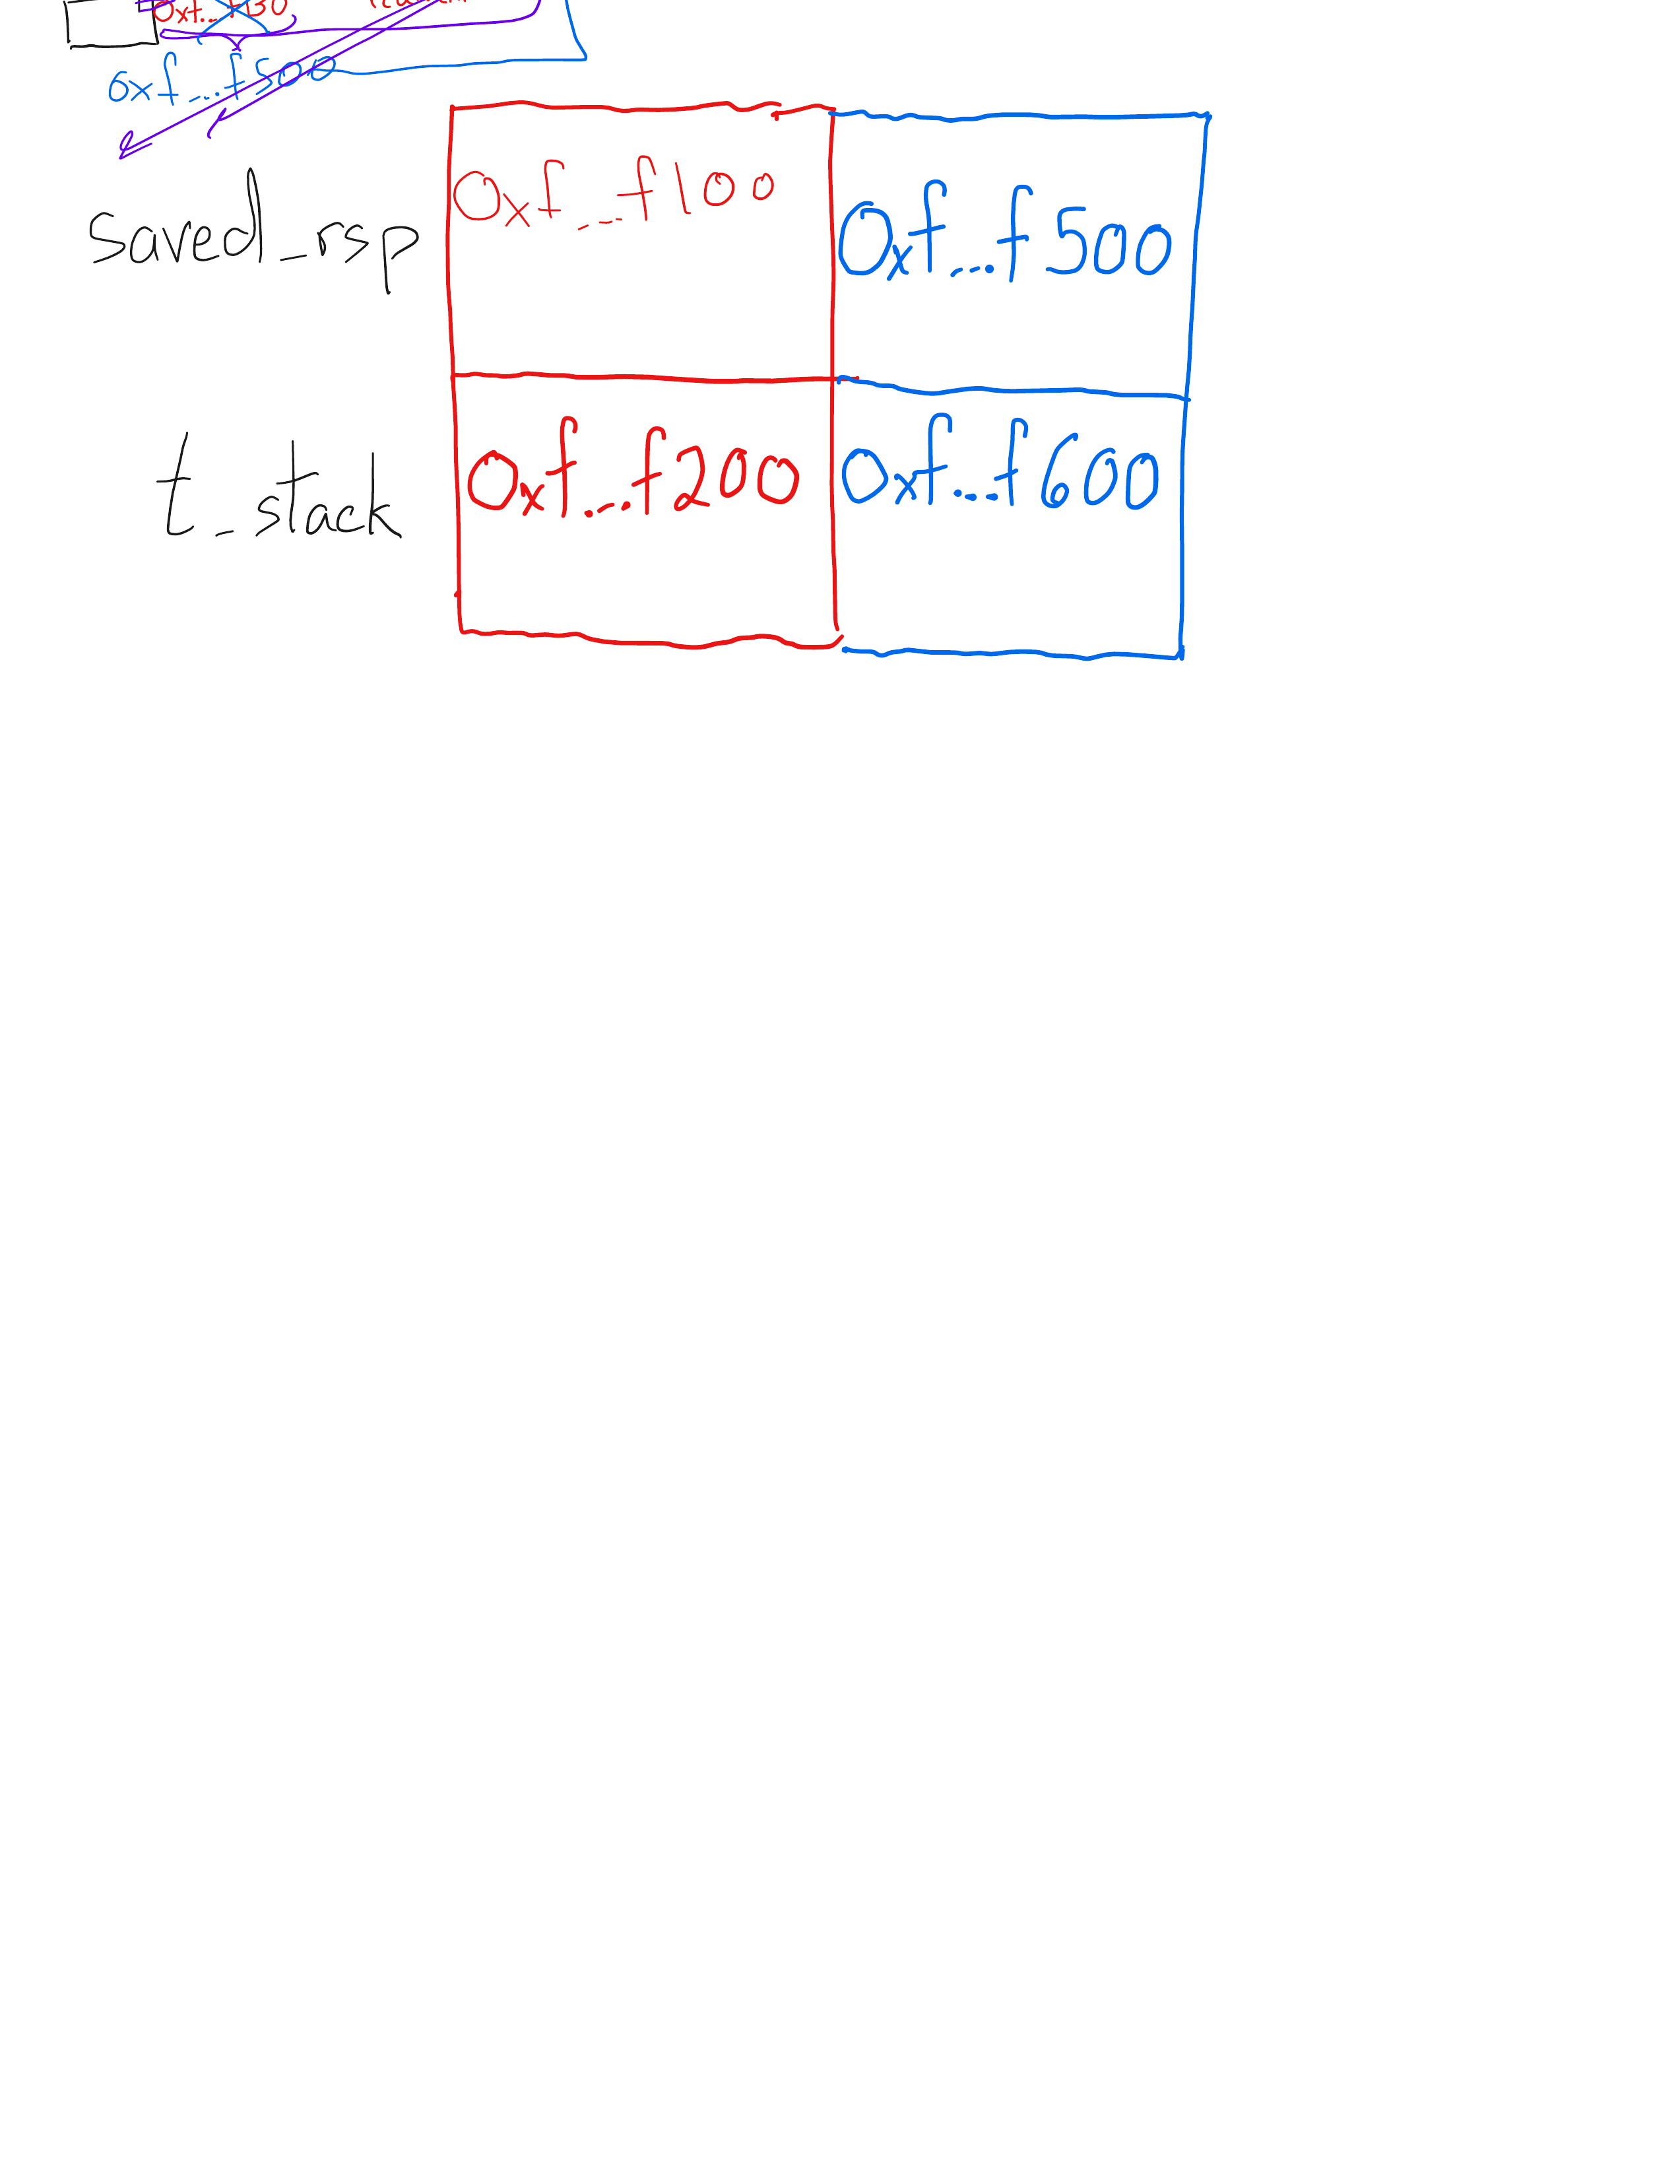 0xf...f130
0xf...f500
saved_rsp 0xf...f100 0xf...f500
t_stack 0xf...f200 0xf...f600